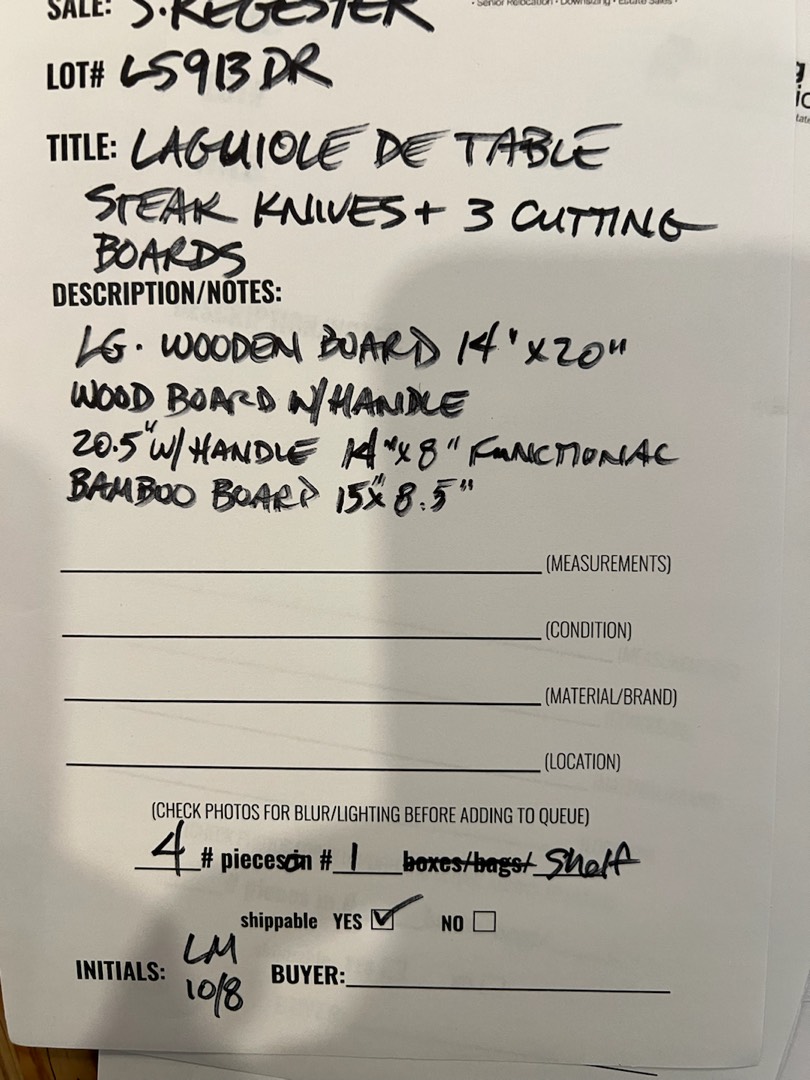 SALE: S. REGESTER
• Senior Relocation • Downsizing • Estate Sales •
LOT# LS913DR
TITLE: LAGUIOLE DE TABLE
STEAK KNIVES + 3 CUTTING
BOARDS
DESCRIPTION/NOTES:
LG. WOODEN BOARD 14" x 20"
WOOD BOARD W/HANDLE
20.5" W/HANDLE 14" x 8" FUNCTIONAL
BAMBOO BOARD 15" x 8.5"
(MEASUREMENTS)
(CONDITION)
(MATERIAL/BRAND)
(LOCATION)
(CHECK PHOTOS FOR BLUR/LIGHTING BEFORE ADDING TO QUEUE)
4 # pieces on # 1 boxes/bags/ Shelf
shippable YES ✓ NO
LM
INITIALS: BUYER:
10/8